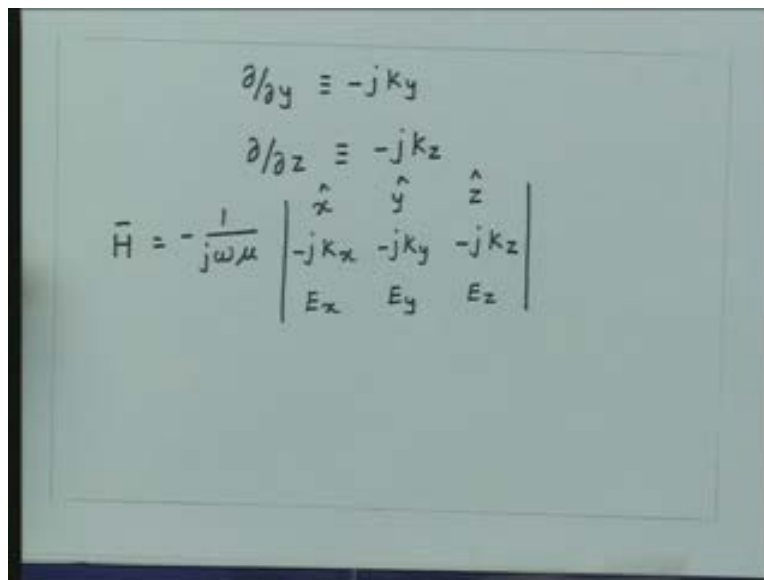 ∂/∂y ≡ -jky
∂/∂z ≡ -jkz
x̂ ŷ ẑ
H̄ = - 1/jωμ | -jkx -jky -jkz |
Ex Ey Ez